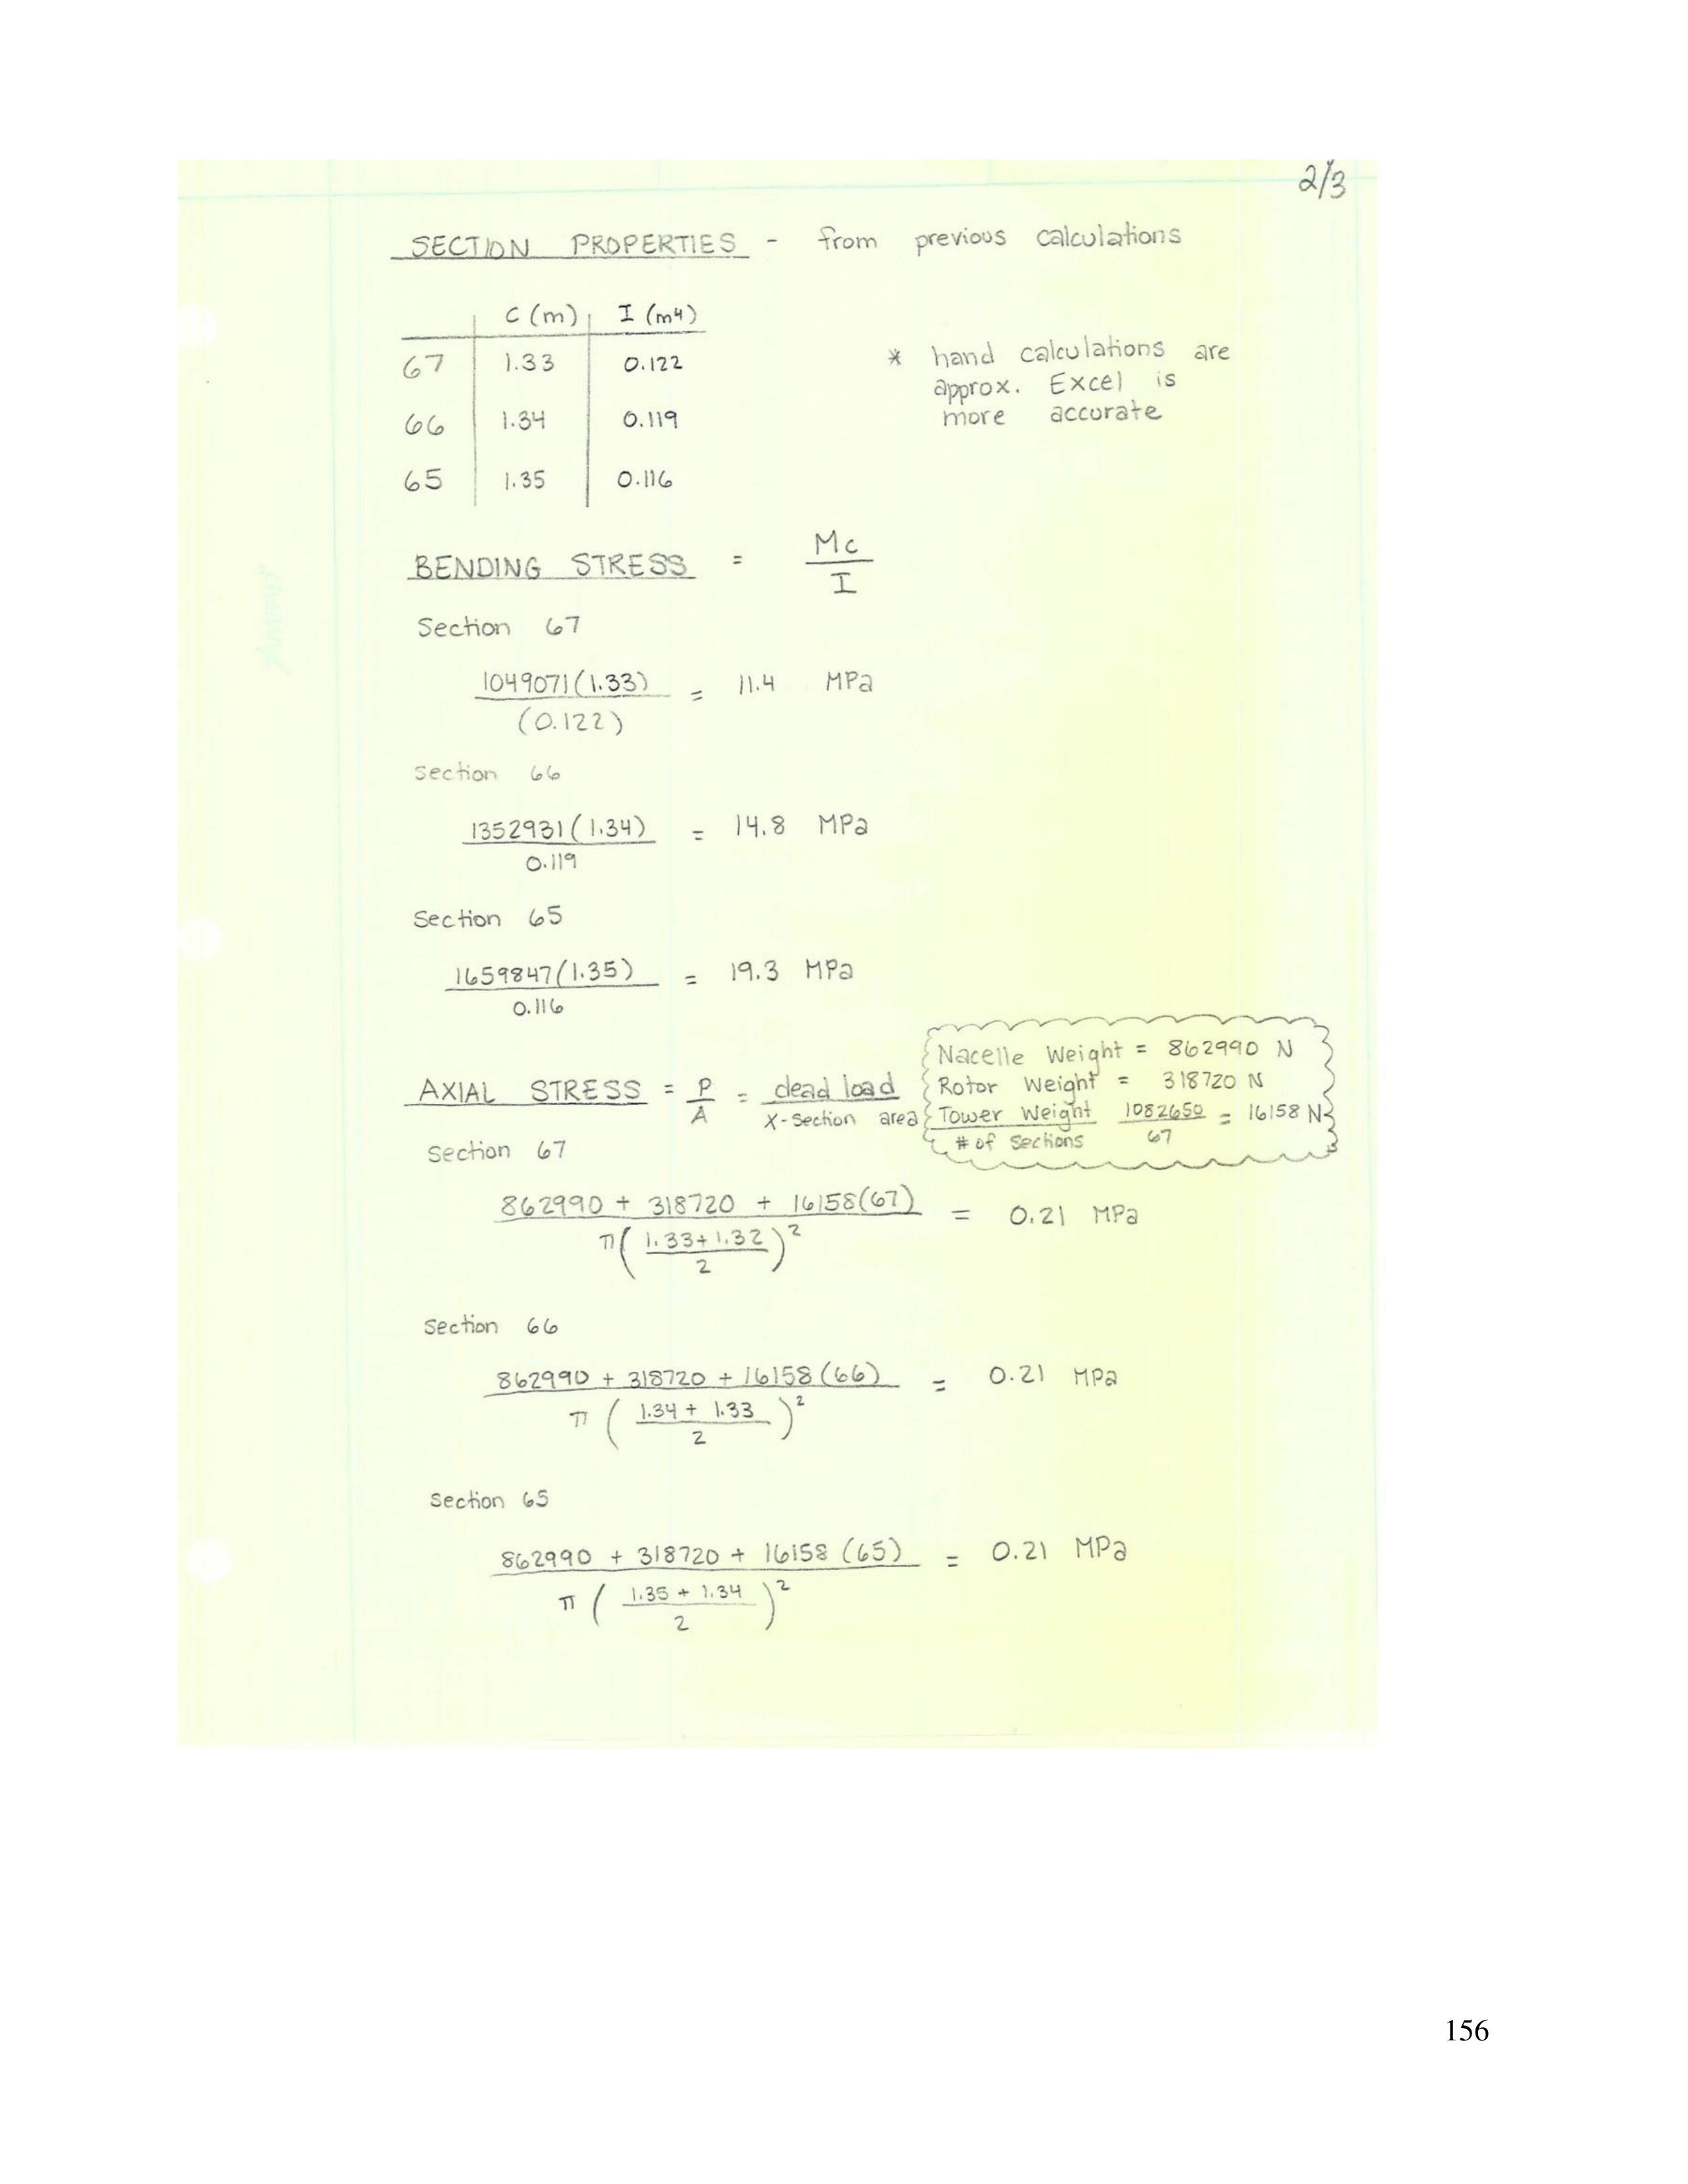 2/3
SECTION PROPERTIES - from previous calculations
C (m) I (m4)
67 1.33 0.122
66 1.34 0.119
65 1.35 0.116
* hand calculations are
approx. Excel is
more accurate
BENDING STRESS = Mc
I
Section 67
1049071(1.33) = 11.4 MPa
(0.122)
section 66
1352931(1.34) = 14.8 MPa
0.119
Section 65
1659847(1.35) = 19.3 MPa
0.116
AXIAL STRESS = P = dead load
A X-section area
Nacelle Weight = 862990 N
Rotor Weight = 318720 N
Tower Weight 1082650 = 16158 N
# of sections 67
Section 67
862990 + 318720 + 16158(67) = 0.21 MPa
π( 1.33+1.32 )2
2
Section 66
862990 + 318720 + 16158(66) = 0.21 MPa
π ( 1.34 + 1.33 )2
2
Section 65
862990 + 318720 + 16158 (65) = 0.21 MPa
π ( 1.35 + 1.34 )2
2
156